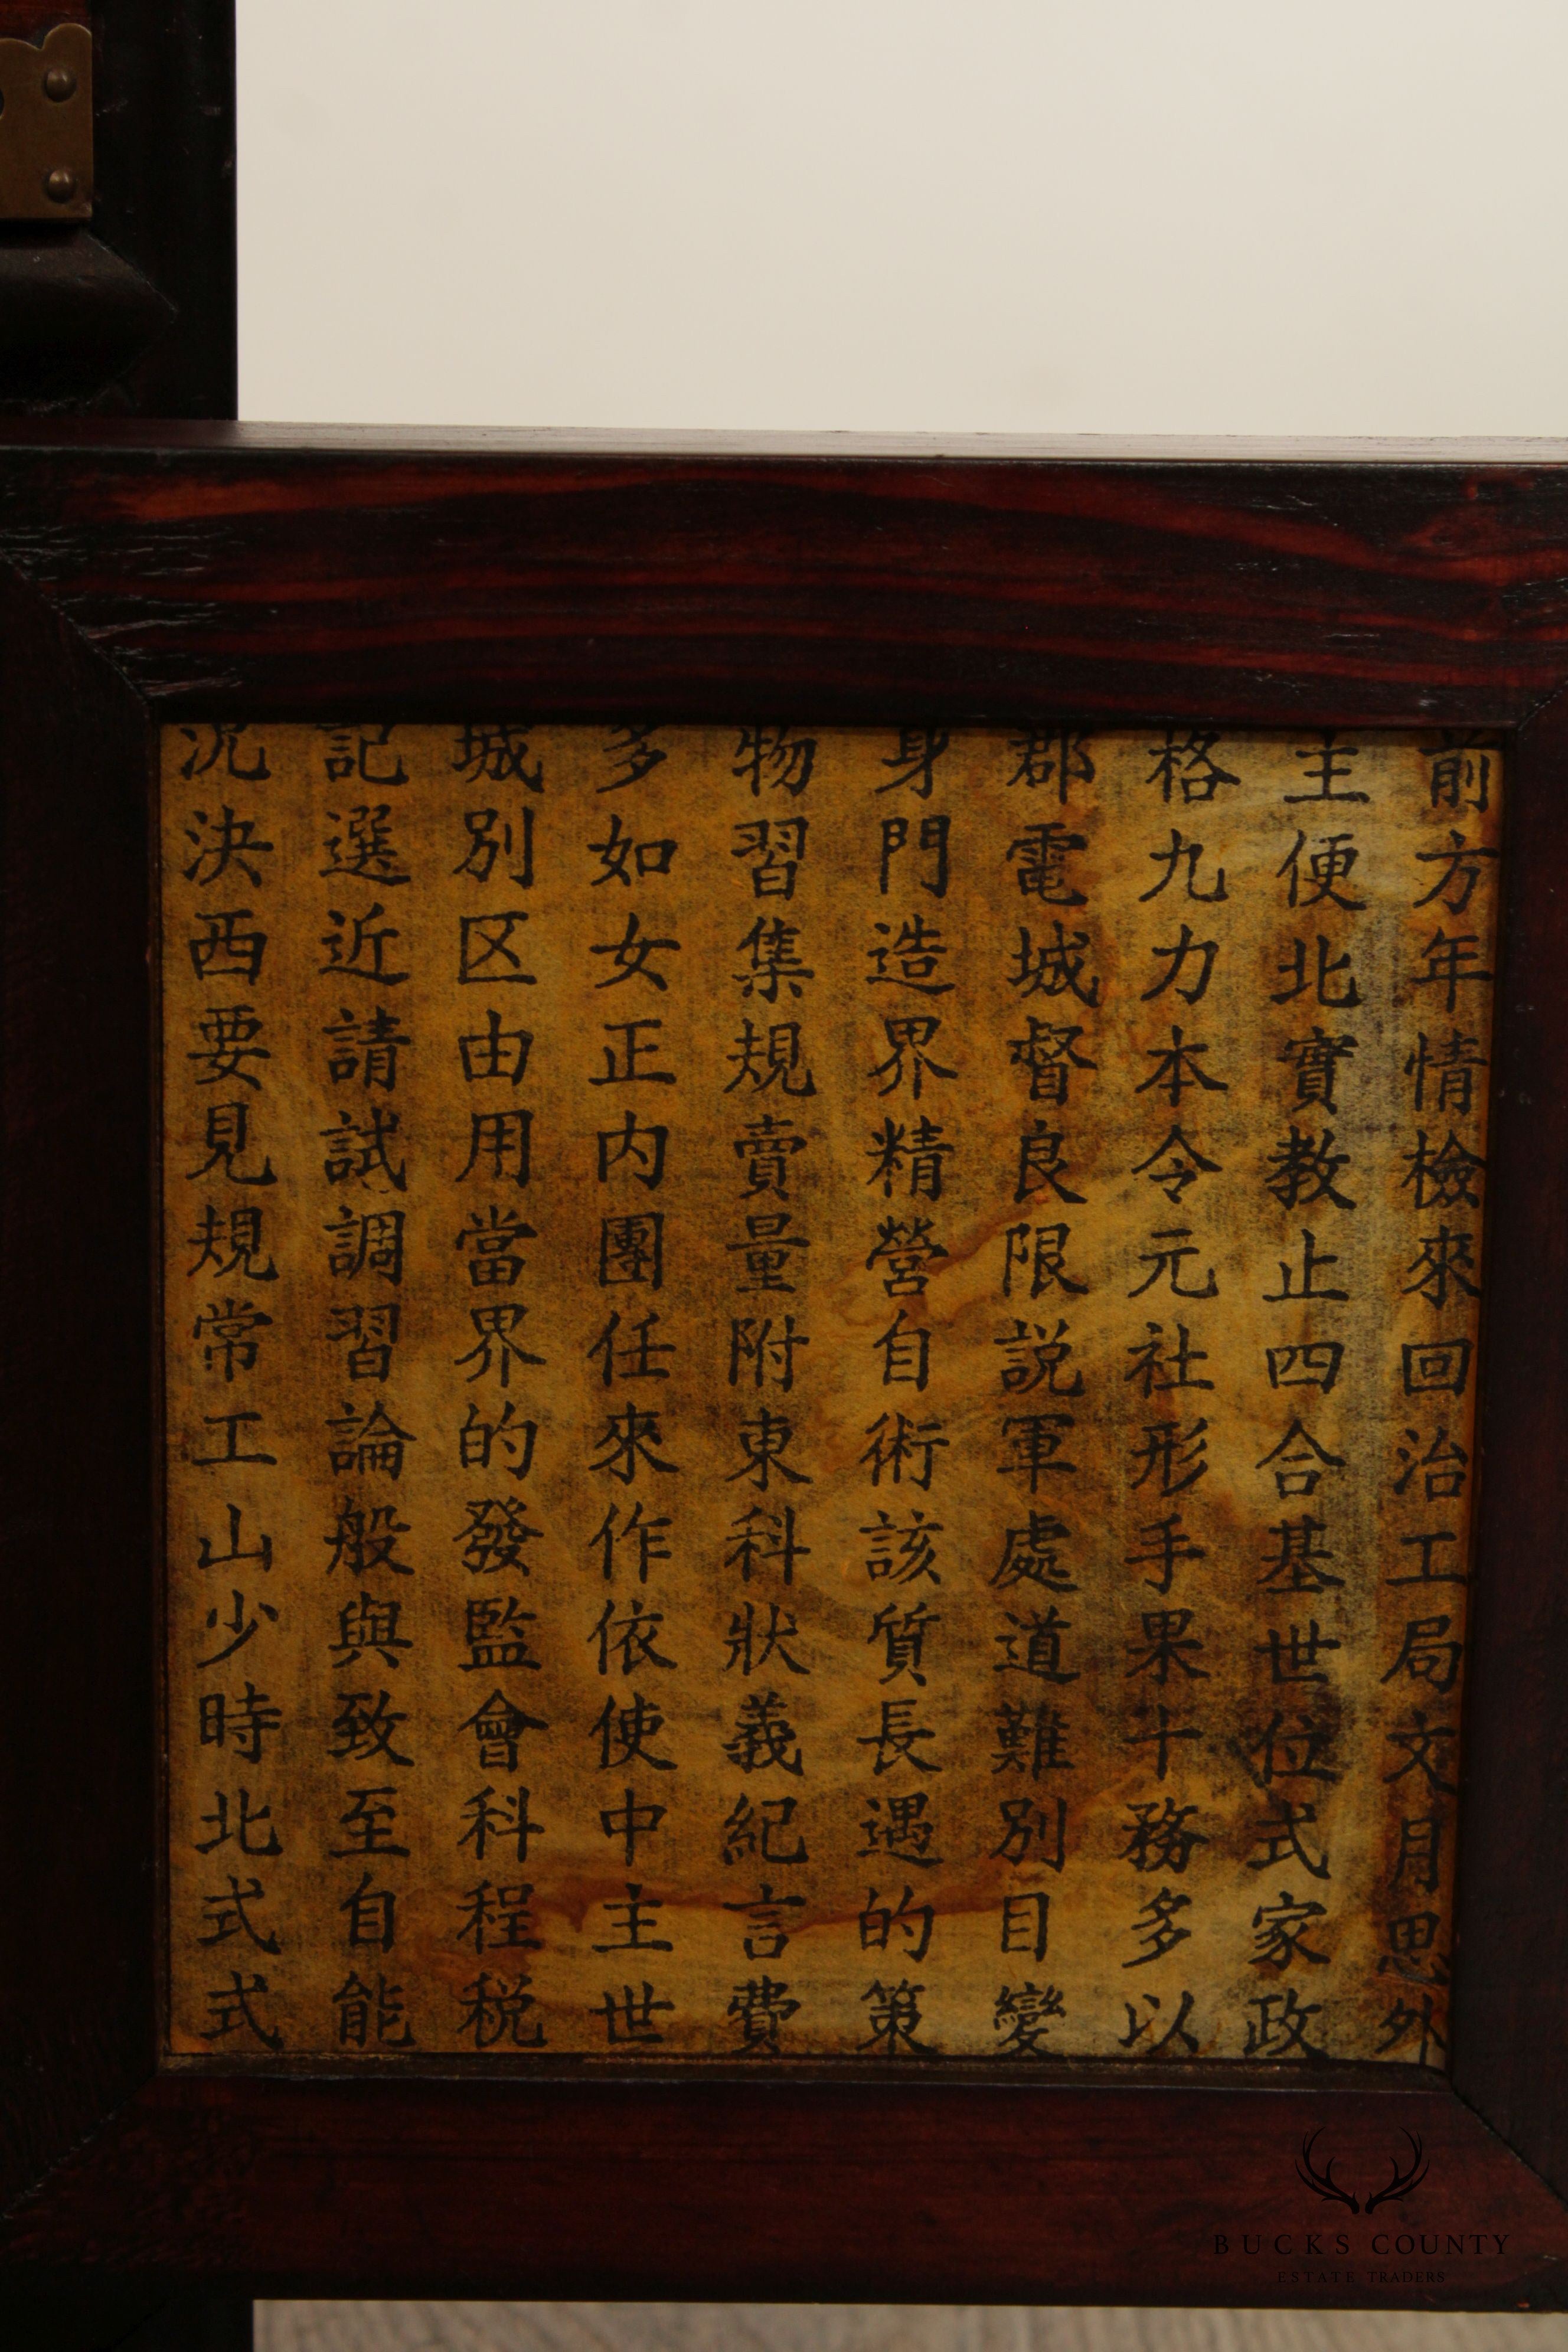 前方年情檢來回治工局文月思外
主便北實教止四合基世位式家政
格九力本令元社形手果十務多以
郡電城督良限説軍處道難別目變
身門造界精營自術該質長遇的策
物習集規賣量附東科狀義紀言費
多如女正内團任來作依使中主世
城別区由用當界的發監會科程税
記選近請試調習論般與致至自能
決西要見規常工山少時北式式
BUCKS COUNTY
ESTATE TRADERS